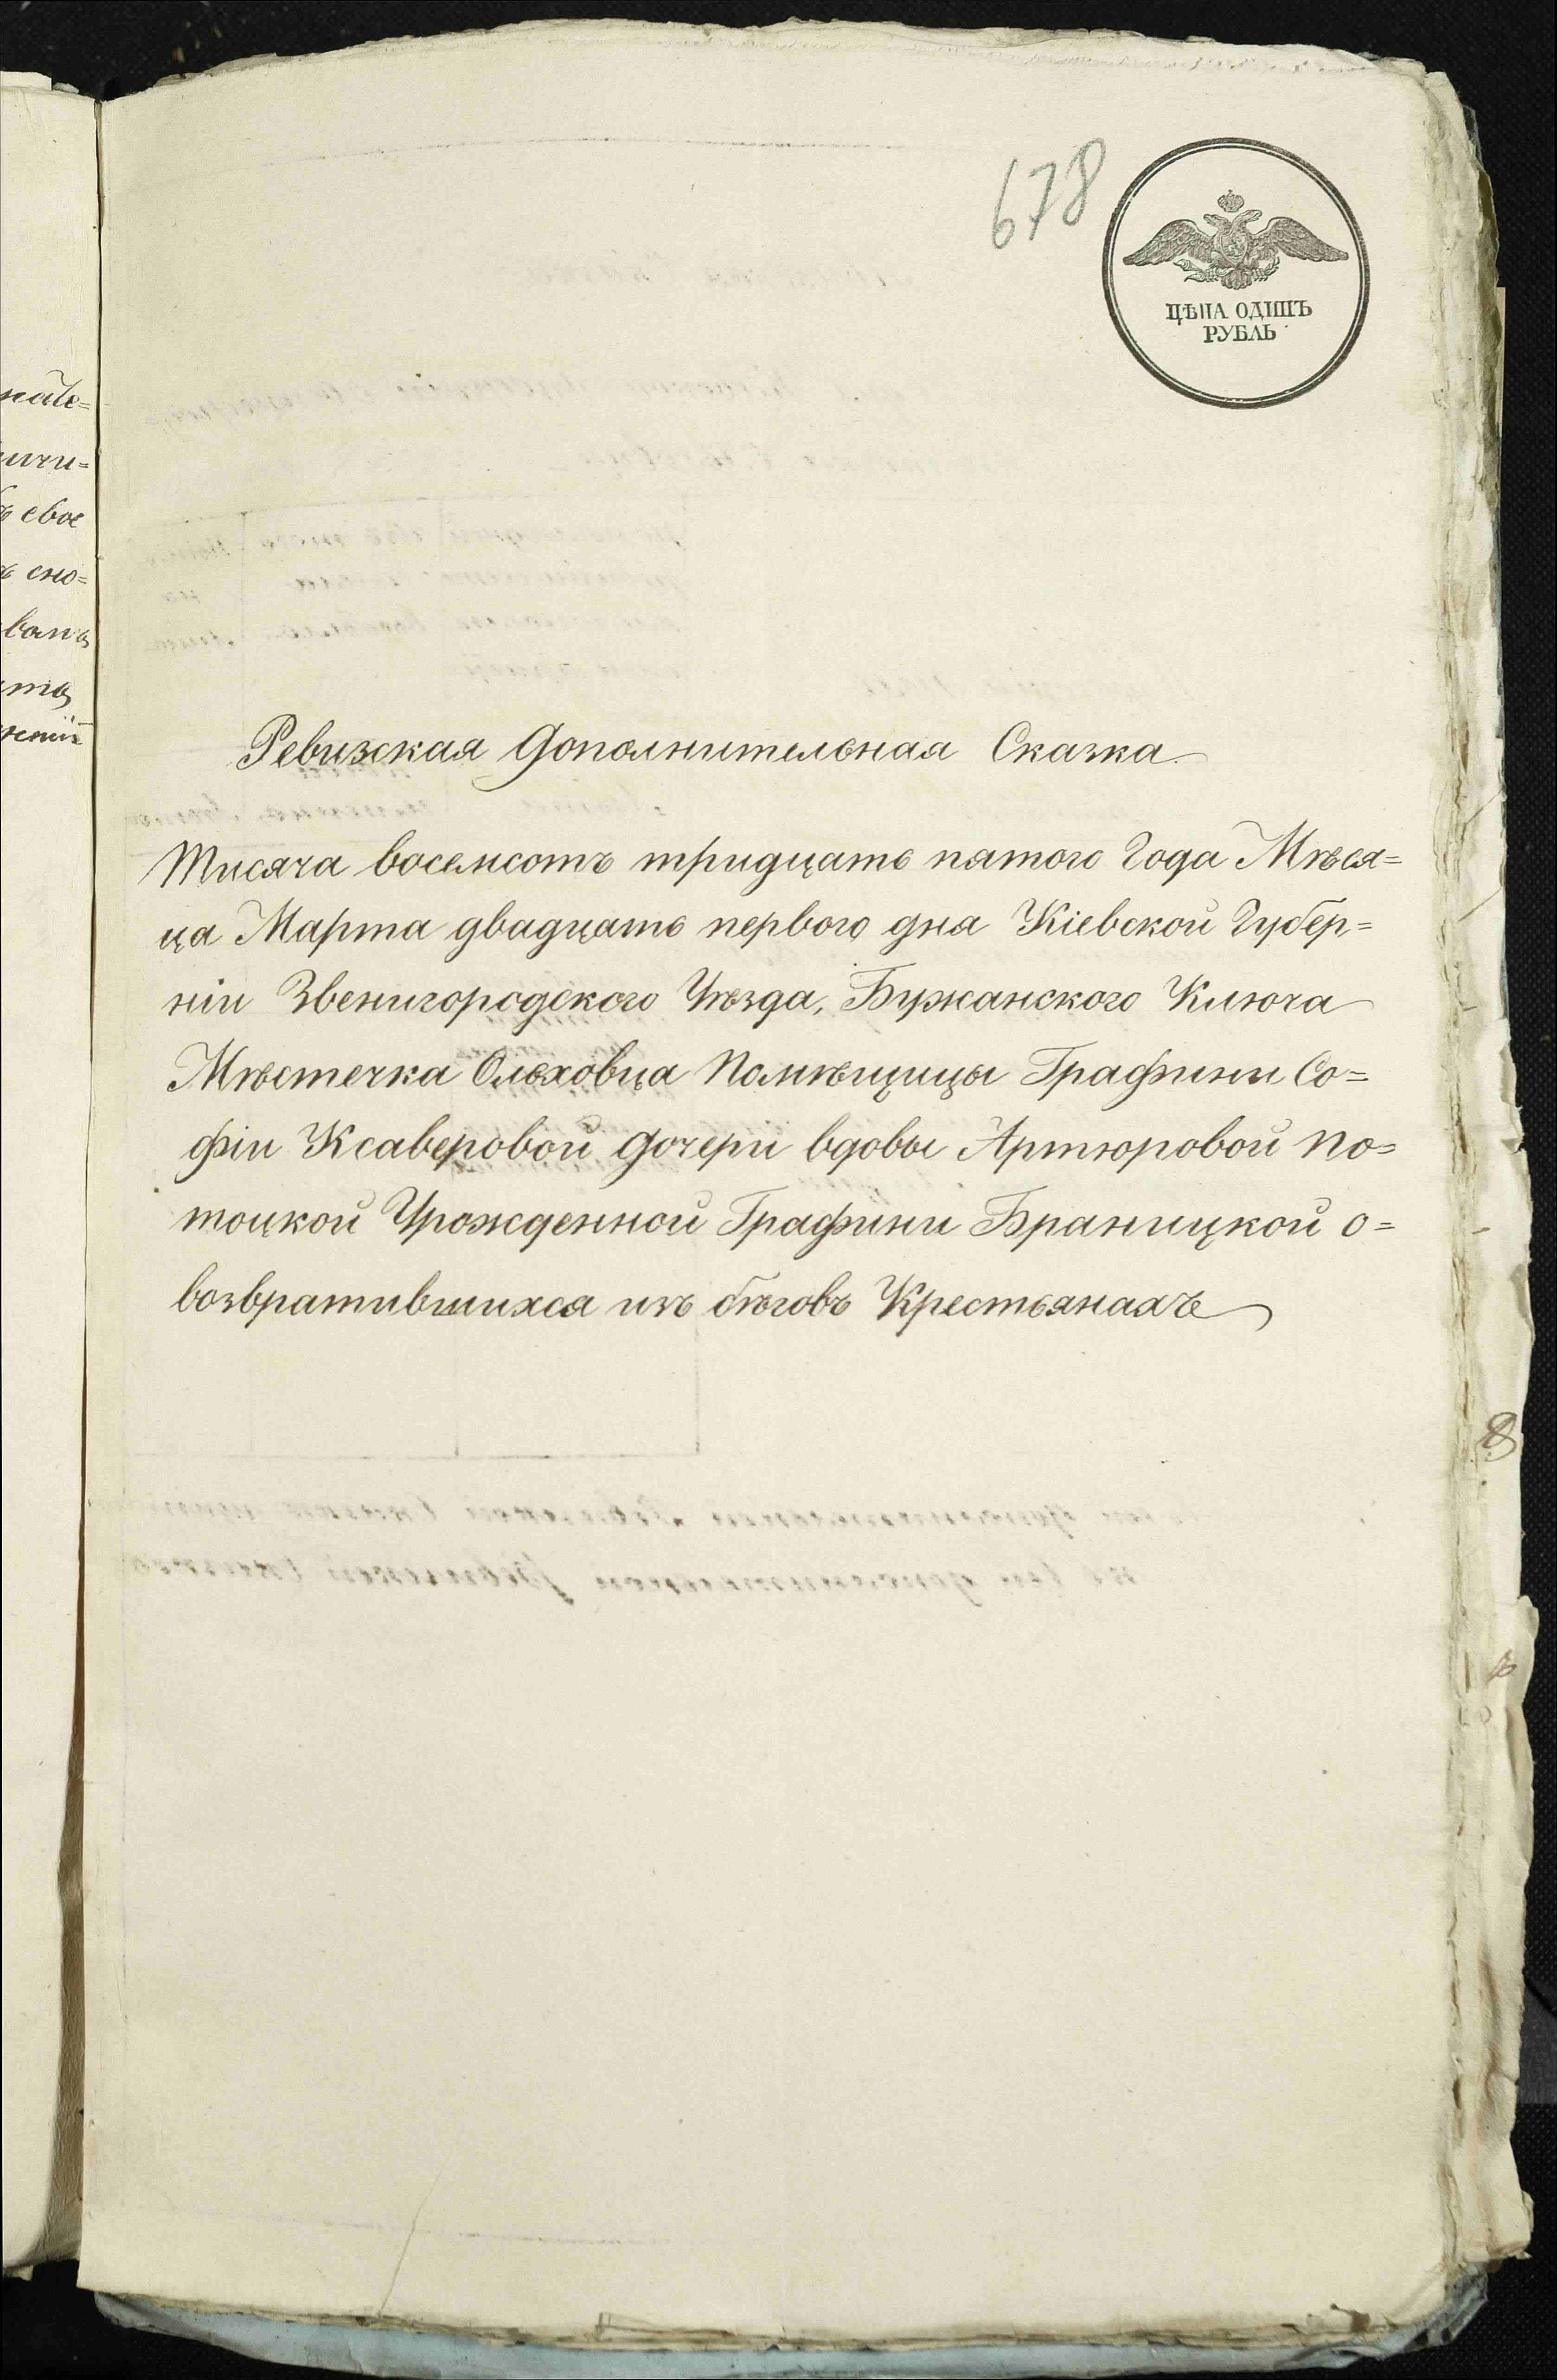 678
ЦѢНА ОДИНЪ
РУБЛЬ
Ревизская Дополнительная Сказка
Тисяча восемсотъ тридцать пятого Года Мѣся=
ца Марта двадцать первого дня Кіевской Губер=
ніи Звенигородского Уѣзда, Бужанского Ключа
Мѣстечка Ольховца Помѣщицы Графини Со=
фіи Ксаверовой Дочери вдовы Артюровой По=
тоцкой Урожденной Графини Браницкой о=
возвратившихся изъ бѣговъ Крестьянахъ